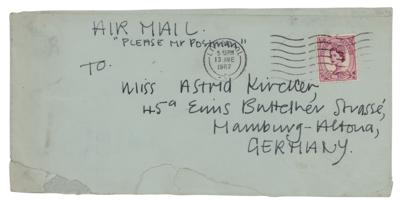 AIR MAIL.
"PLEASE Mr POSTMAN"
LIVERPOOL
5 PM
13 AUG
1962
TO.
Miss Astrid Kircherr,
45a Eims Bütteler Strasse,
Hamburg-Altona,
GERMANY.